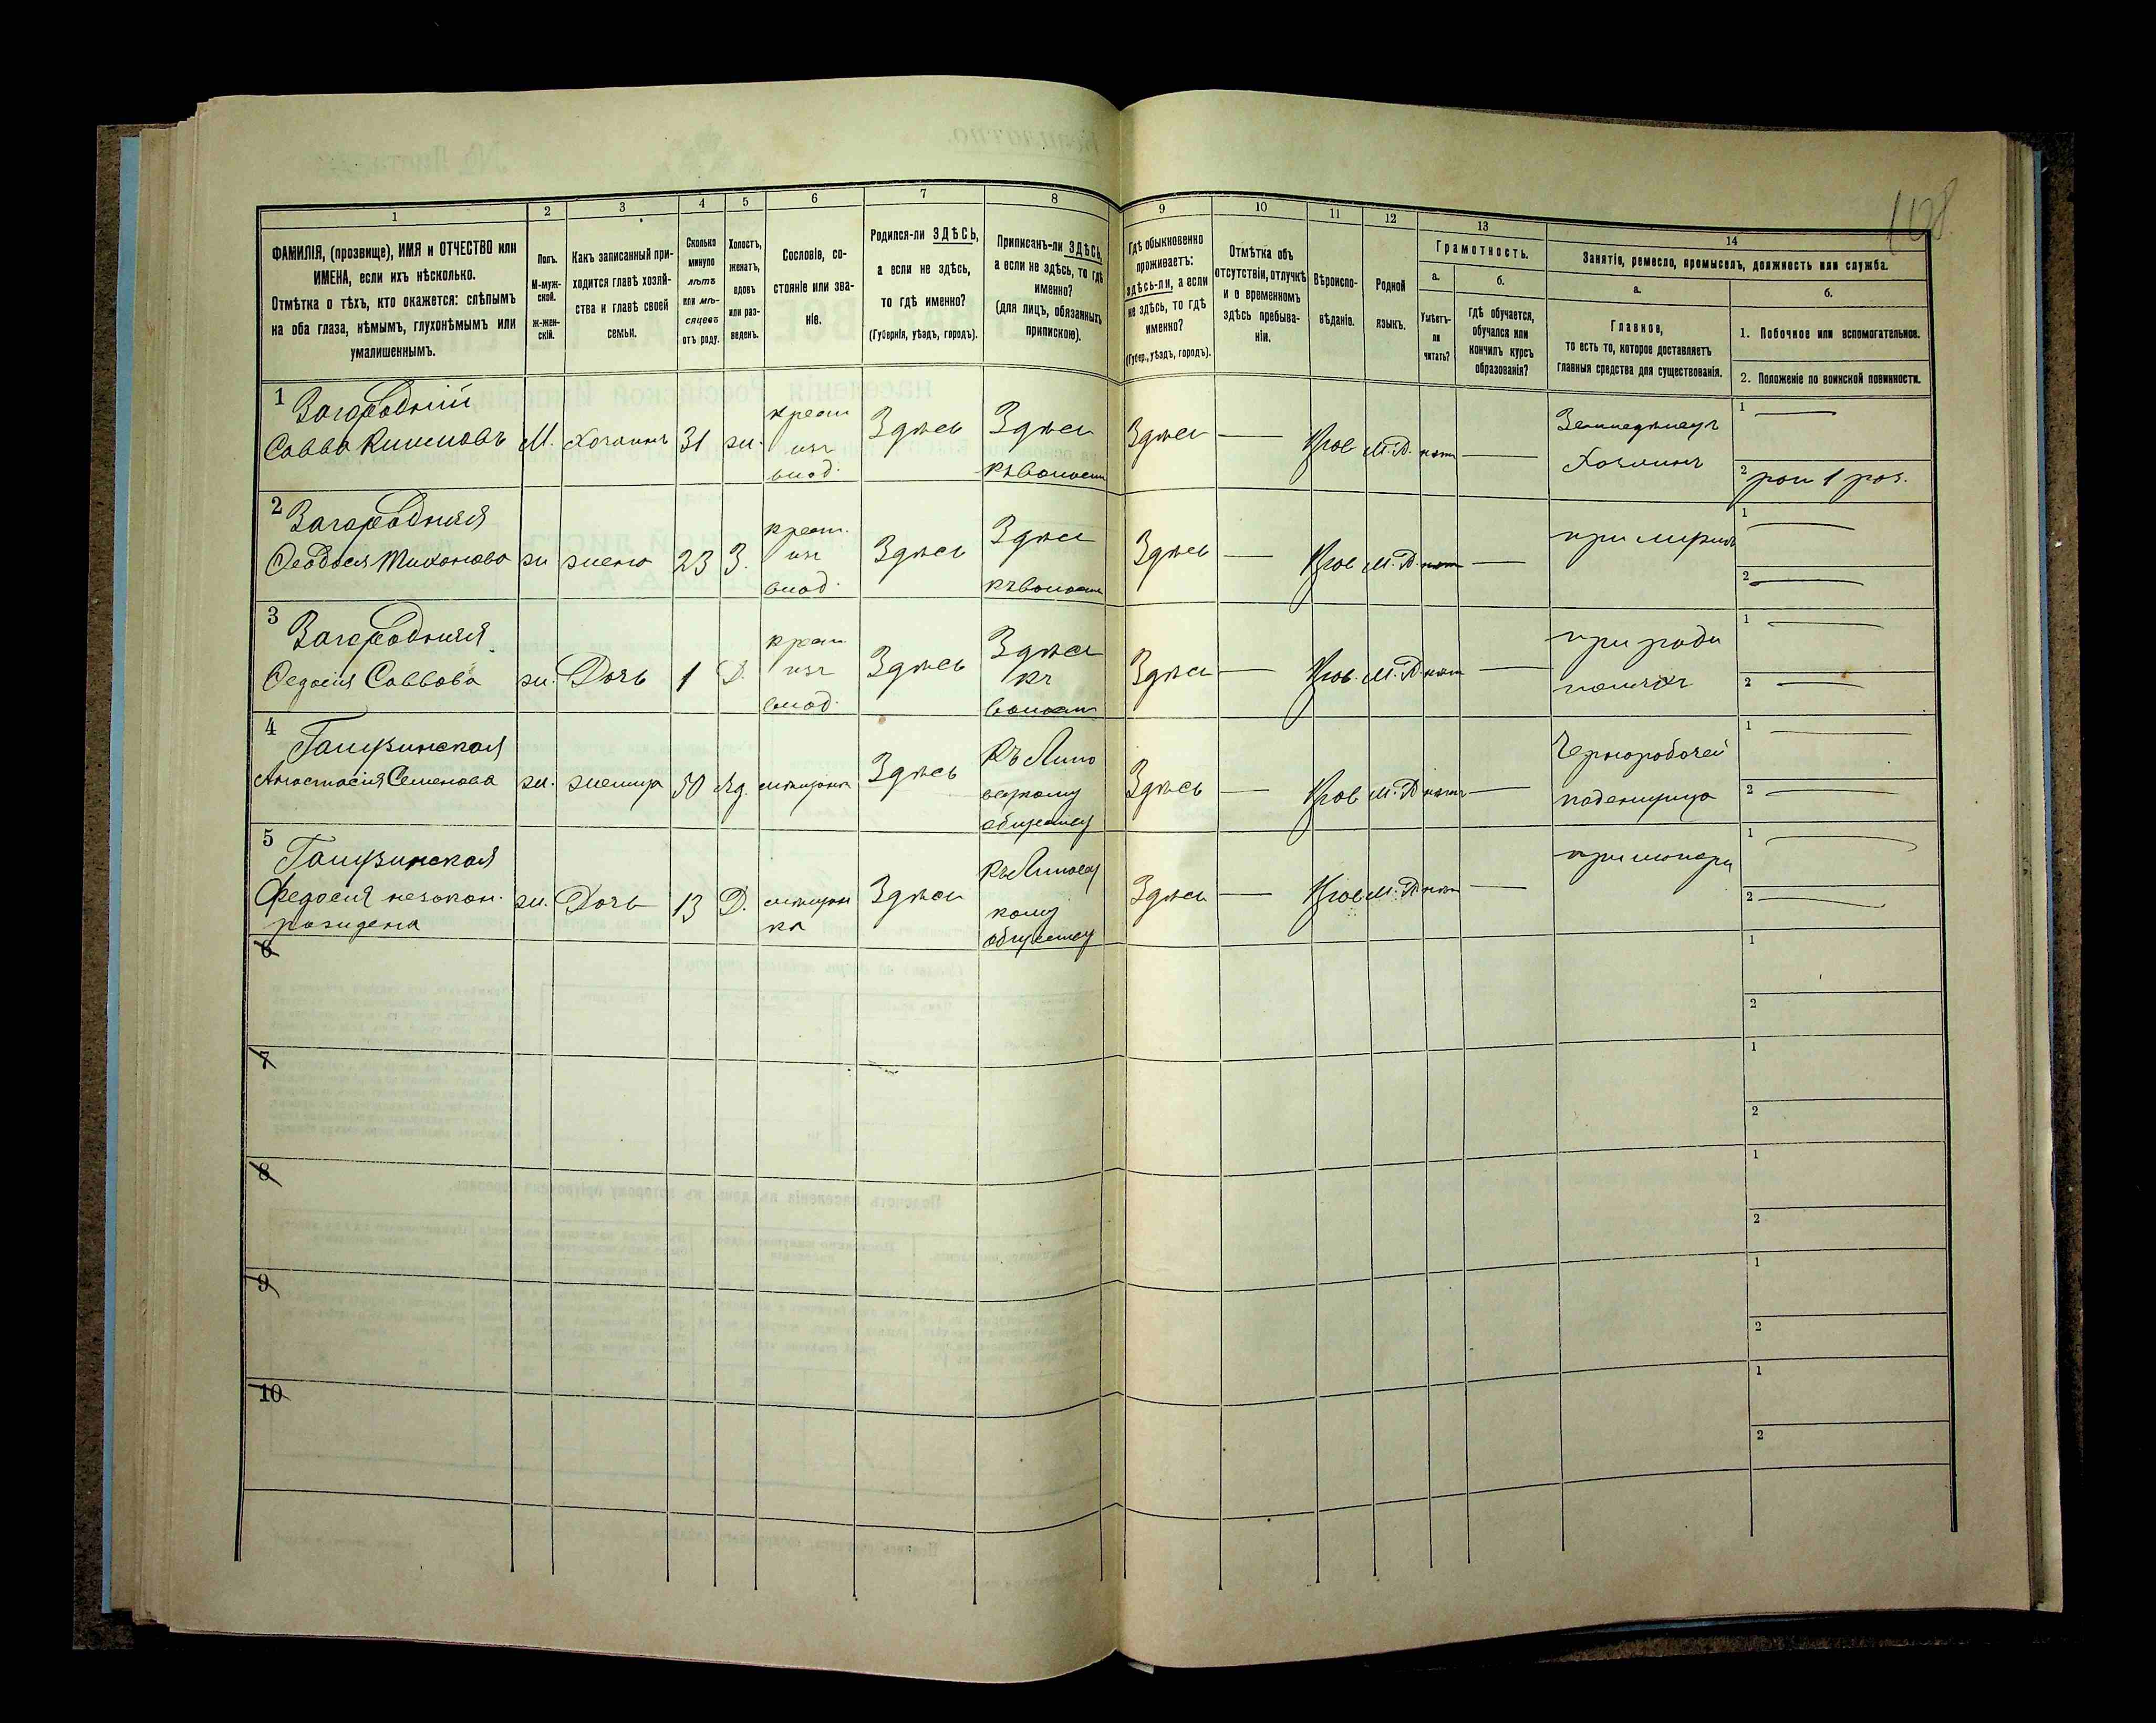 108
1 2 3 4 5 6 7 8 9 10 11 12 13 14
ФАМИЛІЯ, (прозвище), ИМЯ и ОТЧЕСТВО или
ИМЕНА, если ихъ нѣсколько.
Отмѣтка о тѣхъ, кто окажется: слѣпымъ
на оба глаза, нѣмымъ, глухонѣмымъ или
умалишеннымъ.
Полъ.
М-муж-
ской.
Ж-жен-
скій.
Какъ записанный при-
ходится главѣ хозяй-
ства и главѣ своей
семьи.
Сколько
минуло
лѣтъ
или мѣ-
сяцевъ
отъ роду.
Холостъ,
женатъ,
вдовъ
или раз-
веденъ.
Сословіе, со-
стояніе или зва-
ніе.
Родился-ли ЗДѢСЬ,
а если не здѣсь,
то гдѣ именно?
(Губернія, уѣздъ, городъ).
Приписанъ-ли ЗДѢСЬ,
а если не здѣсь, то гдѣ
именно?
(для лицъ, обязанныхъ
припискою).
Гдѣ обыкновенно
проживаетъ:
здѣсь-ли, а если
не здѣсь, то гдѣ
именно?
(Губер., уѣздъ, городъ).
Отмѣтка объ
отсутствіи, отлучкѣ
и о временномъ
здѣсь пребыва-
ніи.
Вѣроиспо-
вѣданіе.
Родной
языкъ.
Грамотность.
а.
Умѣетъ-
ли
читать?
б.
гдѣ обучается,
обучался или
кончилъ курсъ
образованія?
Занятіе, ремесло, промыселъ, должность или служба.
а.
Главное,
то есть то, которое доставляетъ
главныя средства для существованія.
б.
1. Побочное или вспомогательное.
2. Положеніе по воинской повинности.
1 Загородній
Савва М. Хозяинъ 31 ж.
крест
изъ
влад.
Здѣсь
Здѣсь
къ волости
Здѣсь — Прав М.Р. нѣтъ —
Земледѣлецъ
Хозяинъ
1 —
2
2 Загородняя
Ѳеодосія Тихонова ж жена 23 З.
крест.
изъ
влад.
Здѣсь
Здѣсь
къ волости
Здѣсь — Прав М.Р. нѣтъ —
при мужѣ
1 —
2 —
3 Загородняя
Ѳедосія Саввова ж. Дочь 1 Д.
крест
изъ
влад.
Здѣсь
Здѣсь
къ
волости
Здѣсь — Прав. М.Р. нѣтъ —
при роди
теляхъ
1 —
2 —
4
Анастасія Семенова ж. жилица 50 Вд. мѣщанка
Здѣсь
Къ Липо
вецкому
обществу
Здѣсь — Прав М.Р. нѣтъ —
Чернорабочей
поденщица
1 —
2 —
5
Федосія незакон.
рождена
ж. Дочь 13 Д.
мѣщан
ка
Здѣсь
Къ Липовец
кому
обществу
Здѣсь — Прав М.Р. нѣтъ —
при матери
1 —
2 —
6
1
2
7
1
2
8
1
2
9
1
2
10
1
2